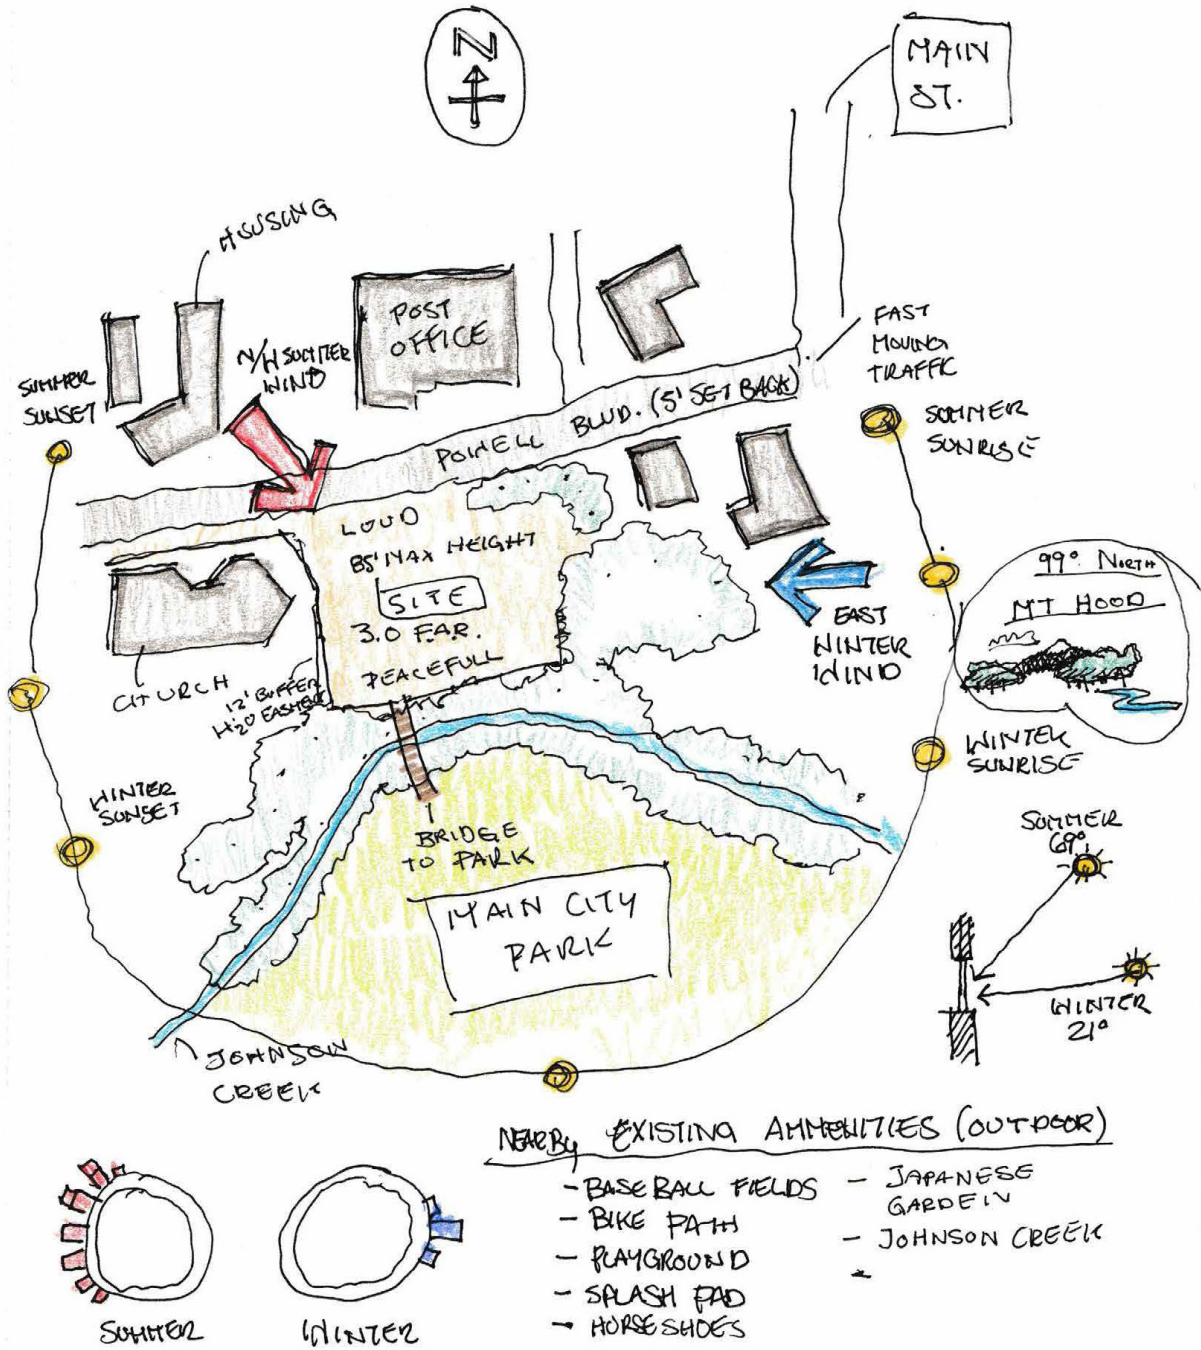 N
MAIN
ST.
HOUSING
POST
OFFICE
N/W SUMMER
WIND
SUMMER
SUNSET
FAST
MOVING
TRAFFIC
POWELL BLVD. (5' SET BACK)
SUMMER
SUNRISE
LOUD
85' MAX HEIGHT
SITE
3.0 F.A.R.
PEACEFULL
99° NORTH
MT HOOD
EAST
WINTER
WIND
CHURCH
12' BUFFER
H2O EASMENT
WINTER
SUNRISE
WINTER
SUNSET
BRIDGE
TO PARK
SUMMER
69°
MAIN CITY
PARK
WINTER
21°
JOHNSON
CREEK
NEARBY EXISTING AMMENITIES (OUTDOOR)
- BASEBALL FIELDS
- BIKE PATH
- PLAYGROUND
- SPLASH PAD
- HORSESHOES
- JAPANESE
GARDEN
- JOHNSON CREEK
-
SUMMER
WINTER